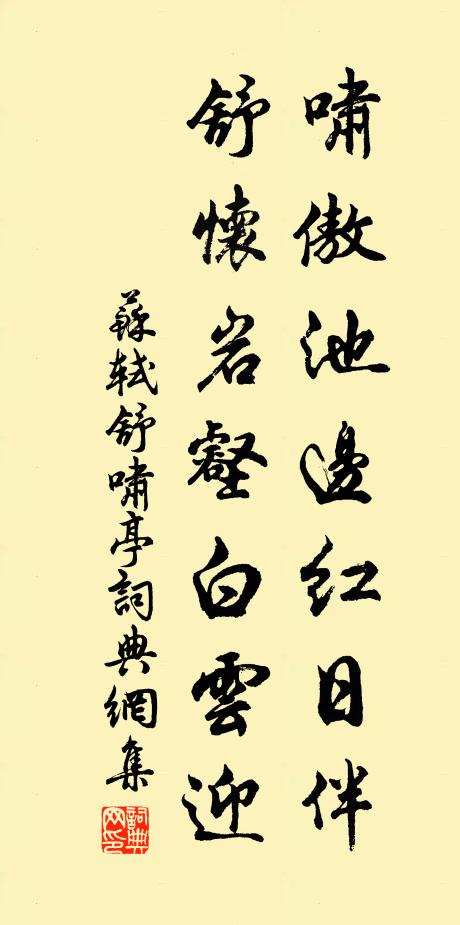 嘯傲池邊紅日伴
舒懷岩壑白雲迎
蘇軾舒嘯亭詞典網集
詞典网印